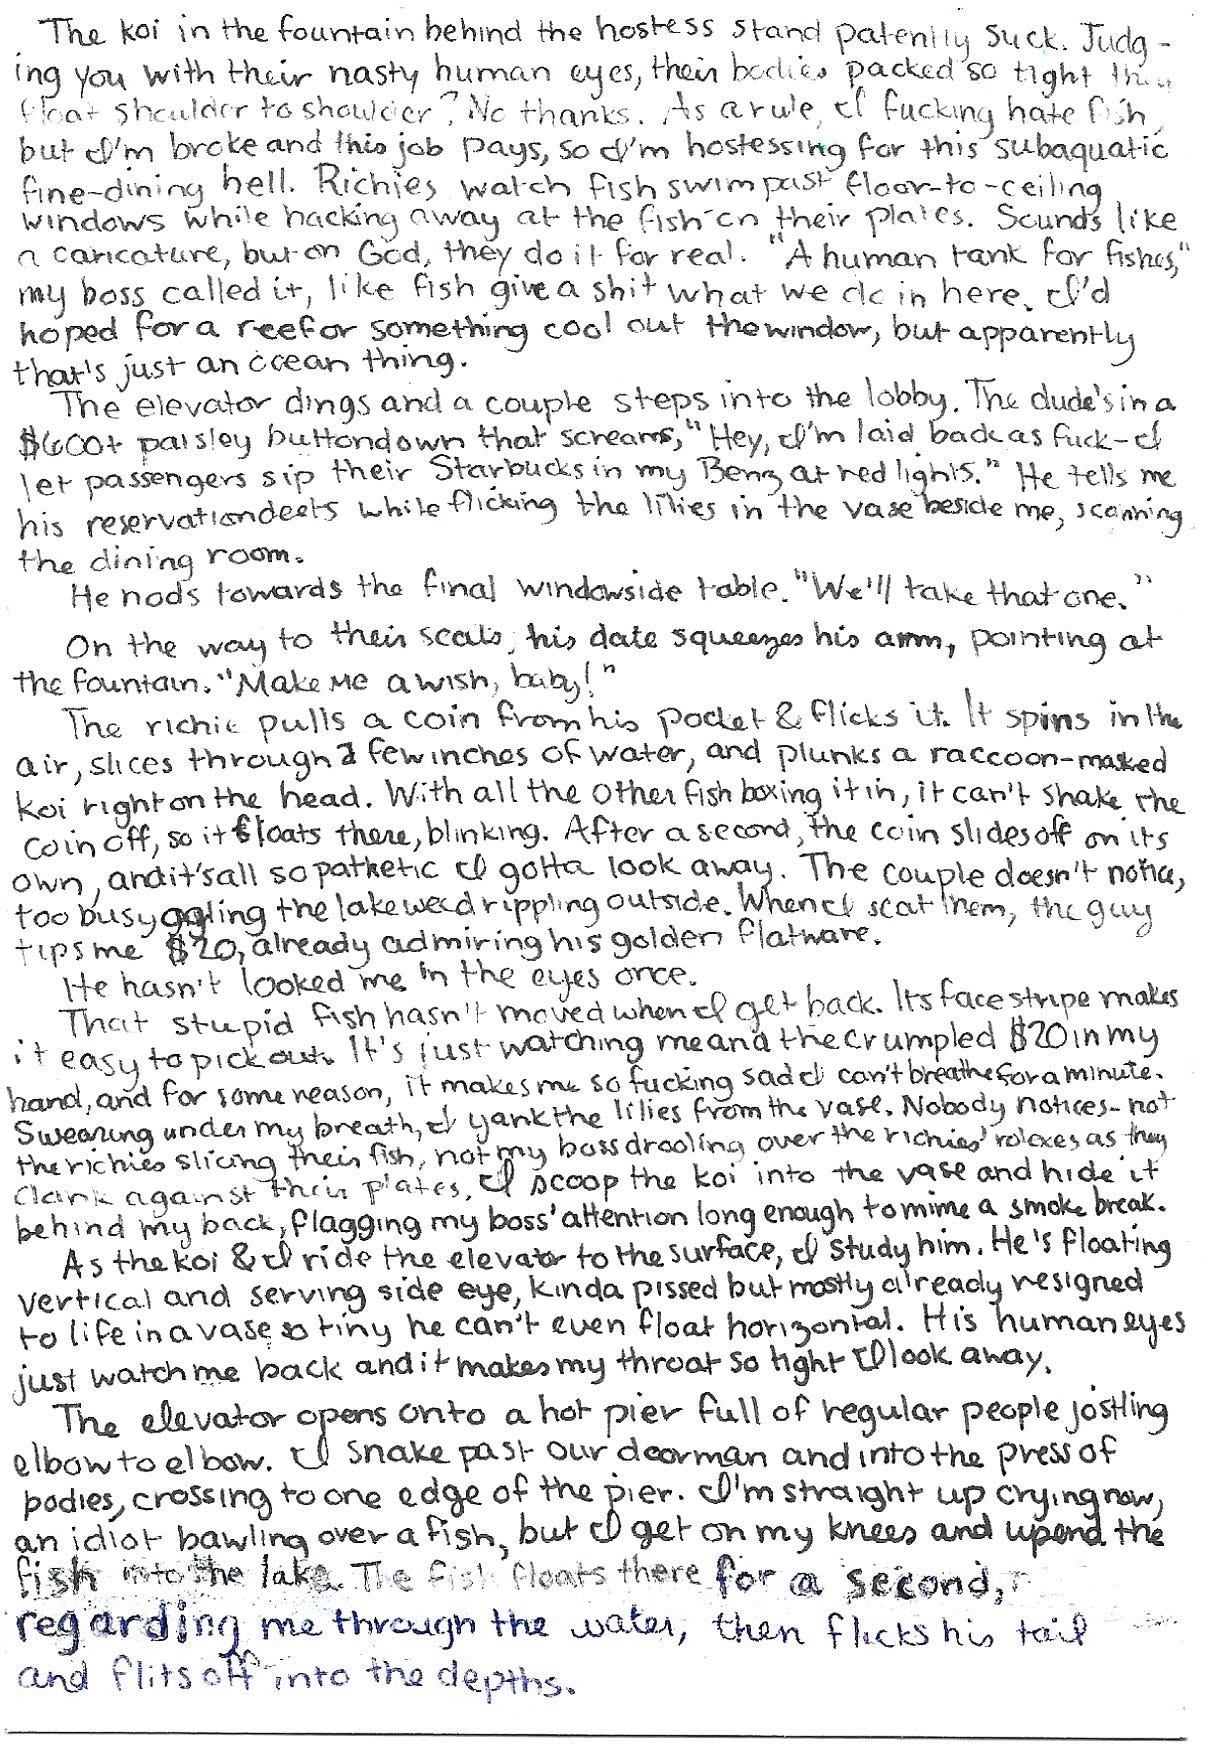 The koi in the fountain behind the hostess stand patently suck. Judg-
ing you with their nasty human eyes, their bodies packed so tight they
float shoulder to shoulder? No thanks. As a rule, I fucking hate fish,
but I'm broke and this job pays, so I'm hostessing for this subaquatic
fine-dining hell. Richies watch fish swim past floor-to-ceiling
windows while hacking away at the fish on their plates. Sounds like
a caricature, but on God, they do it for real. "A human tank for fishes,"
my boss called it, like fish give a shit what we do in here. I'd
hoped for a reef or something cool out the window, but apparently
that's just an ocean thing.
The elevator dings and a couple steps into the lobby. The dude's in a
$600+ paisley buttondown that screams, "Hey, I'm laid back as fuck-I
let passengers sip their Starbucks in my Benz at red lights." He tells me
his reservation deets while flicking the lilies in the vase beside me, scanning
the dining room.
He nods towards the final windowside table. "We'll take that one."
On the way to their seats, his date squeezes his arm, pointing at
the fountain. "Make me a wish, baby!"
The richie pulls a coin from his pocket & flicks it. It spins in the
air, slices through a few inches of water, and plunks a raccoon-masked
koi right on the head. With all the other fish boxing it in, it can't shake the
coin off, so it floats there, blinking. After a second, the coin slides off on its
own, and it's all so pathetic I gotta look away. The couple doesn't notice,
too busy ogling the lakeweed rippling outside. When I seat them, the guy
tips me $20, already admiring his golden flatware.
He hasn't looked me in the eyes once.
That stupid fish hasn't moved when I get back. Its face stripe makes
it easy to pick out. It's just watching me and the crumpled $20 in my
hand, and for some reason, it makes me so fucking sad I can't breathe for a minute.
Swearing under my breath, I yank the lilies from the vase. Nobody notices-not
the richies slicing their fish, not my boss drooling over the richies' rolexes as they
clank against their plates. I scoop the koi into the vase and hide it
behind my back, flagging my boss' attention long enough to mime a smoke break.
As the koi & I ride the elevator to the surface, I study him. He's floating
vertical and serving side eye, kinda pissed but mostly already resigned
to life in a vase so tiny he can't even float horizontal. His human eyes
just watch me back and it makes my throat so tight I look away.
The elevator opens onto a hot pier full of regular people jostling
elbow to elbow. I snake past our doorman and into the press of
bodies, crossing to one edge of the pier. I'm straight up crying now,
an idiot bawling over a fish, but I get on my knees and upend the
fish into the lake. The fish floats there for a second,
regarding me through the water, then flicks his tail
and flits off into the depths.